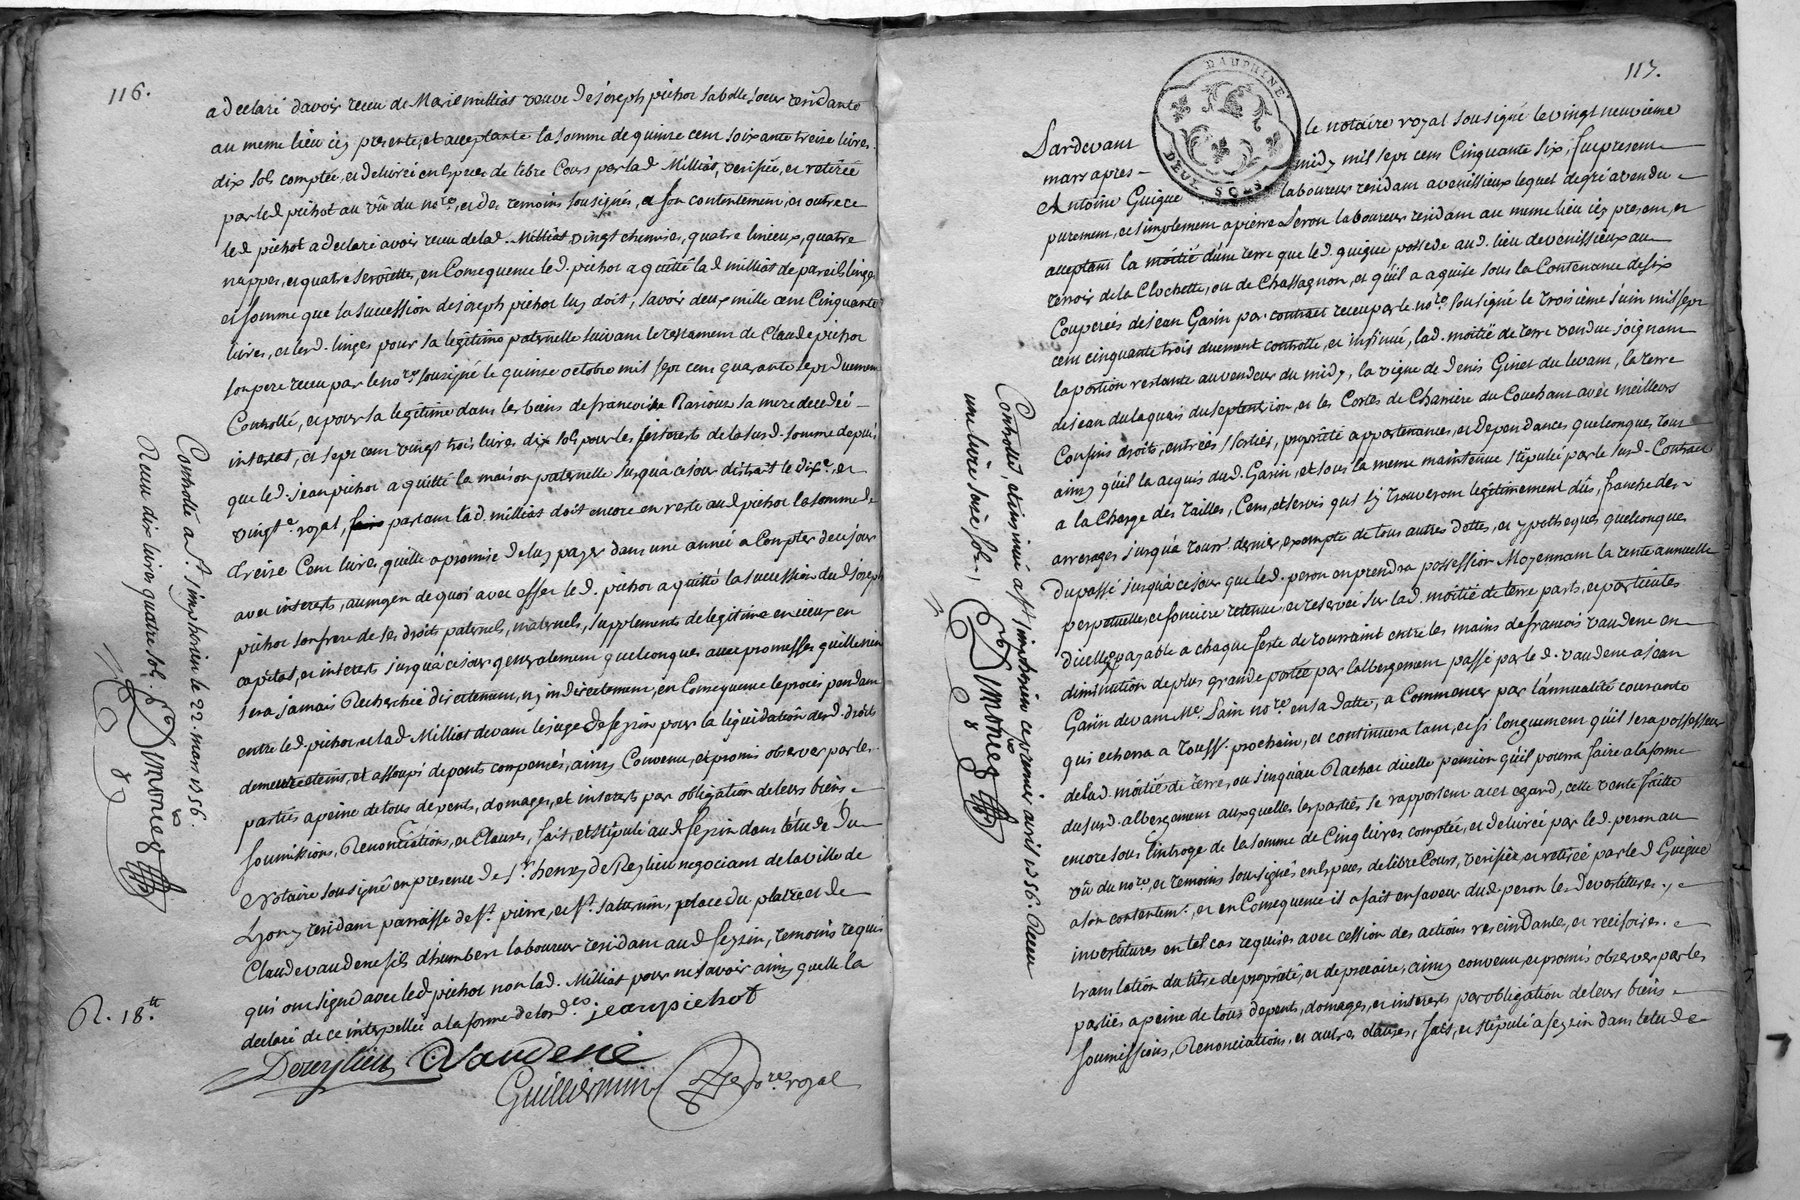 116.
a declaré d'avoir receu de Marie milliat veuve de joseph pichot sa belle soeur residante
au meme lieu icy presente, et acceptante la somme de quinze cent soixante treize livres
dix sols comptée, et delivrée en especes de libre Cours par lad. Milliat, verifiée, et retirée
par led pichot au vû du no.re, et des temoins sousignés, a son contentement, et outre ce
led pichot a declaré avoir receu de lad. Milliat vingt chemise, quatre linceux, quatre
nappes, et quatre serviettes, en Consequence led. pichot a quitté lad milliat de pareils linges
et somme que la succession de joseph pichot luy doit, savoir deux mille cent Cinquante
livres, et lesd. linges pour sa legitime paternelle suivant le testament de Claude pichot
son pere receu par le no.re sousigné le quinze octobre mil sept cens quarante sept duement
Controllé, et pour sa legitime dans les biens de francoise sa mere decedée
intestat, et sept cent vingt trois livres dix sols pour les interests de la susd. somme depuis
que led. jean pichot a quitté la maison paternelle jusqu'a ce jour distrait le dix.e, et
vingt.e royal, partant lad. milliat doit encore en reste aud pichot la somme de
treize Cent livres quelle a promise de luy payer dans une année a Compter de ce jour
avec interests, au moyen de quoi avec effet led. pichot a quitté la succession dud joseph
pichot son frere de ses droits paternels, maternels, supplements de legitime en iceux en
capital, et interests jusqu'a ce jour generalement quelconques avec promesses quelle n'en
sera jamais Recherchée directement, ny indirectement, en Consequence le procés pendant
entre led. pichot et lad Milliat devant le juge de feyzin pour la liquidation desd. droits
demeure eteint, et assoupi depents compensés, ainsy Convenu, et promis observer par les
parties a peine de tous depents, domages, et interests par obligation de leurs biens
soumissions, Renonciations, et Clauses, fait, et stipulé aud feyzin dans l'étude du
Notaire sousigné en presence de s.r henry de Rezlieu negociant de la ville de
Lyon y residant parroisse de s.t pierre, et s.t saturnin, place du platre et de
Claude vaudene fils d'humbert laboureur residant aud feyzin, temoins requis
qui ont signé avec led pichot non lad. Milliat pour ne savoir ainsy quelle la
declaré de ce interpellée a la forme de l'ord.ce jean pichot
Derezlieu Vaudene
Guillermin no.re royal
Controllé a s.t simphorien le 22. mars 1756.
Receu dix livres quatre sols.
R. 18.tt
117.
DAUPHINE
DEUX SOLS
Pardevant le notaire royal sousigné le vingt neuvieme
mars apres midy mil sept cent Cinquante six, fut present
Antoine Guigue laboureur residant a venissieux lequel de gré a vendu
purement, et simplement a pierre peron laboureur residant au meme lieu icy present, et
acceptant la moitié d'une terre que led. guigue possede aud. lieu de venissieux au
terroir de la Clochette, ou de Chassagnon, et qu'il a aquise sous la Contenance de six
Couperées de jean Garin par contract receu par le no.re sousigné le troisième juin mil sept
cent cinquante trois duement controllé, et insinué, lad. moitié de terre vendue joignant
la portion restante au vendeur du midy, la vigne de Denis Ginet du levant, la terre
de jean dulaquais du septentrion, et les Costes de Charriere du Couchant avec meilleurs
Confins droits, entrées, sorties, proprieté appartenances, et dependances quelconques, tout
ainsy qu'il la acquis dud. Garin, et sous la meme maintenue stipulée par le susd. Contract
a la Charge des tailles, Cens, et servis qui s'y trouveront legitimement dûs, franche des
arrerages jusqu'a touss. dernier, exempte de tous autres dettes, et ypotheques quelconques
du passé jusqu'a ce jour que led. peron en prendra possession Moyennant la rente annuelle
perpetuelle, et fonciere retenue, et reservée sur lad. moitié de terre parts, et particules
d'icelle payable a chaque feste de toussaint entre les mains de francois vaudene en
diminution de plus grande portée par l'albergement passé par led. vaudene a jean
Garin devant Me. Pain no.re en sa datte, a Commencer par l'annualité courante
qui echerra a Touss. prochain, et continuera tant, et si longuement qu'il sera possesseur
de lad. moitié de terre, ou jusqu'au Rachat d'icelle pension qu'il pourra faire a la forme
du susd. albergement auxquelles les parties se rapportent a cet egard, cette vente faitte
encore sous l'introge de la somme de Cinq livres comptée, et delivrée par led. peron au
vû du no.re, et temoins sousignés en especes de libre Cours, verifiée, et retirée par led Guigue
a son contentem.t, et en Consequence il a fait en faveur dud peron les devestitures,
investitures en tel cas requises avec cession des actions rescindantes, et recisoires,
translation du titre de proprieté, et de precaire, ainsy convenu, et promis observer par les
parties a peine de tous depents, domages, et interests par obligation de leurs biens
soumissions, Renonciations, et autres clauses, fait, et stipulé a feyzin dans l'etude
Controllé, et insinué a s.t simphorien ce premier avril 1756. Receu
une livre seize sols